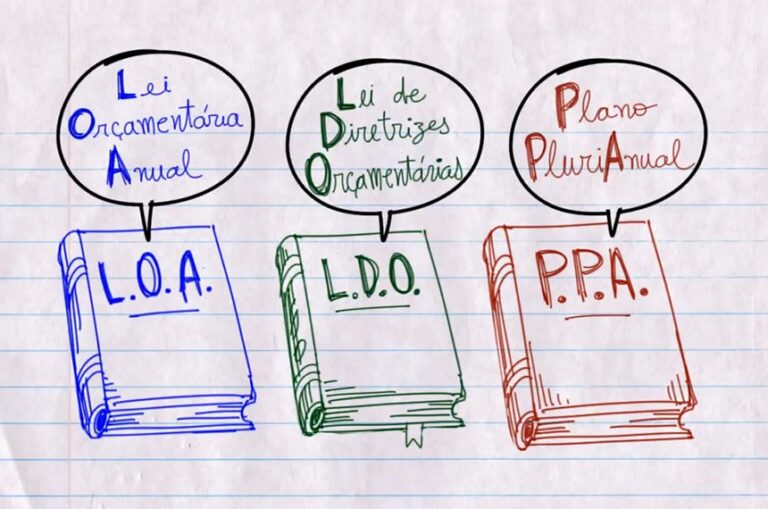 Lei
Orçamentária
Anual
Lei de
Diretrizes
Orçamentárias
Plano
PluriAnual
L.O.A.
L.D.O.
P.P.A.